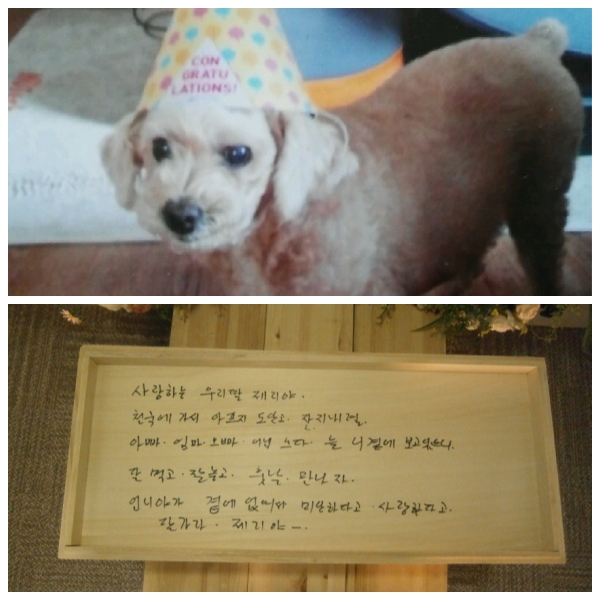 CON
GRATU
LATIONS!
사랑하는 우리딸 제리야.
천국에 가서 아프지 도 잘지내렴.
아빠. 엄마. 오빠. 늘 니 곁에 보고
잘 먹고. 잘놀고. 만나자.
언니야가 곁에 없어서 미안하다고. 사랑한다고.
잘가라. 제리야ㅡ.